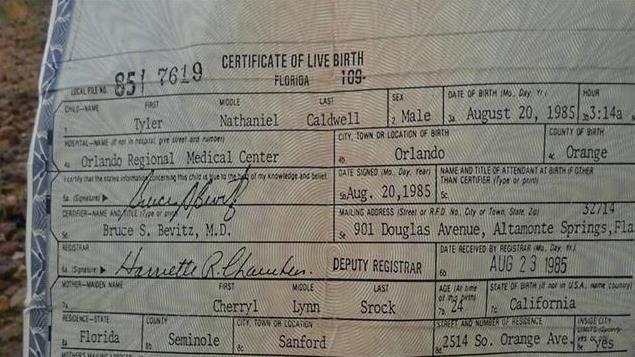 CERTIFICATE OF LIVE BIRTH
LOCAL FILE NO. 851 7619 FLORIDA 109-
CHILD—NAME FIRST MIDDLE LAST SEX DATE OF BIRTH (Mo., Day, Yr.) HOUR
1 Tyler Nathaniel Caldwell 2 Male 3a August 20, 1985 3b 3:14a
HOSPITAL—NAME (If not in hospital, give street and number) CITY, TOWN OR LOCATION OF BIRTH COUNTY OF BIRTH
4a Orlando Regional Medical Center 4b Orlando 4c Orange
I certify that the stated information concerning this child is true to the best of my knowledge and belief. DATE SIGNED (Mo., Day, Year) NAME AND TITLE OF ATTENDANT AT BIRTH IF OTHER
THAN CERTIFIER (Type or print)
5a (Signature) Bruce S Bevitz 5b Aug. 20,1985 5c
CERTIFIER—NAME AND TITLE (Type or print) MAILING ADDRESS (Street or R.F.D. No., City or Town, State, Zip) 32714
5d Bruce S. Bevitz, M.D. 5e 901 Douglas Avenue, Altamonte Springs,Fla
REGISTRAR DATE RECEIVED BY REGISTRAR (Mo., Day, Yr.)
6a (Signature) Harriette R. Chambers. DEPUTY REGISTRAR 6b AUG 23 1985
MOTHER—MAIDEN NAME FIRST MIDDLE LAST AGE (At time of this birth) STATE OF BIRTH (If not in U.S.A., name country)
7a Cherryl Lynn Srock 7b 24 7c California
RESIDENCE—STATE COUNTY CITY, TOWN OR LOCATION STREET AND NUMBER OF RESIDENCE INSIDE CITY LIMITS? (Specify yes or no)
Florida Seminole Sanford 8d 2514 So. Orange Ave. 8e Yes